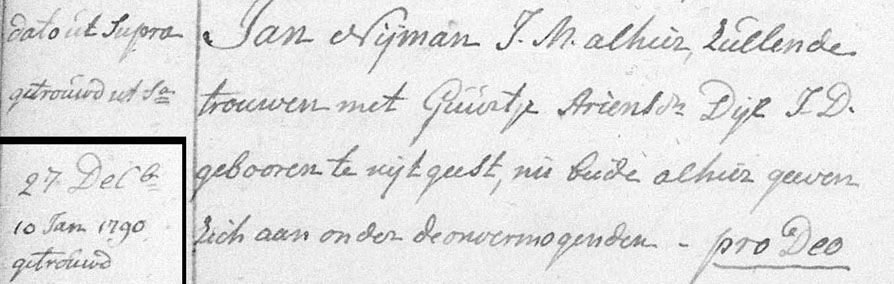 dato ut Supra
getrouwd ut Sa
27 Decb
10 Jan 1790
getrouwd
Jan Nijman J. M. alhier, Zullende
trouwen met Guurtje Ariensdr Dijk J D.
gebooren te uijtgeest, nu beide alhier geeven
Zich aan onder de onvermogenden - pro Deo